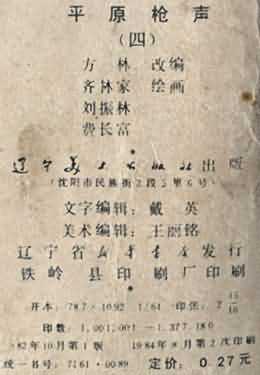 平原枪声
(四)
方林 改编
齐林家 绘画
刘振林
费长富
辽宁美术出版社出版
(沈阳市民族街2段5里6号)
文字编辑:戴 英
美术编辑:王丽铭
辽宁省新华书店发行
铁岭县印刷厂印刷
开本:787×1092 1/64 印张:2 15/16
印数:1,001,001—1,377,180
82年10月第1版 1984年 月第2次印刷
统一书号:7161·0089 定价:0.27元